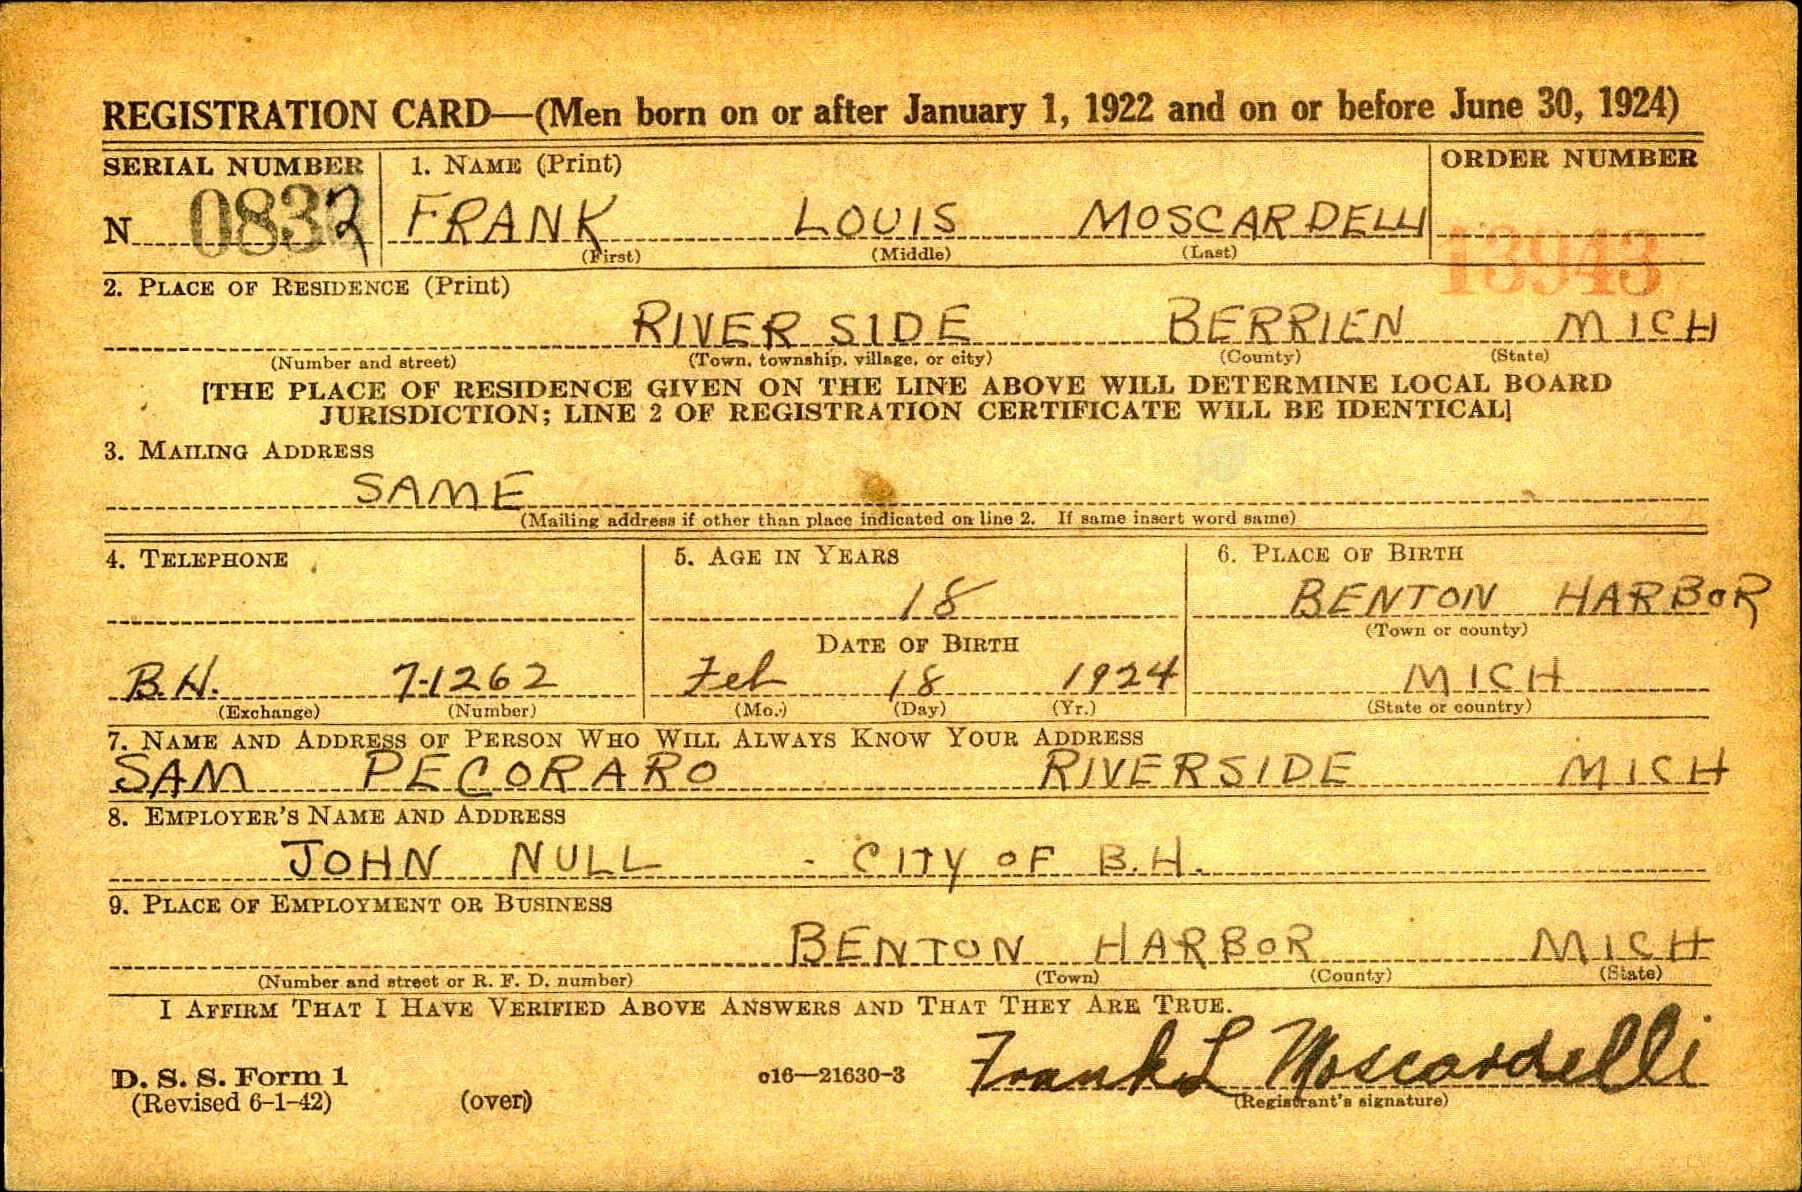 REGISTRATION CARD—(Men born on or after January 1, 1922 and on or before June 30, 1924)
SERIAL NUMBER 1. NAME (Print) ORDER NUMBER
N 0832 FRANK LOUIS MOSCARDELLI
(First) (Middle) (Last)
13943
2. PLACE OF RESIDENCE (Print)
RIVER SIDE BERRIEN MICH
(Number and street) (Town, township, village, or city) (County) (State)
[THE PLACE OF RESIDENCE GIVEN ON THE LINE ABOVE WILL DETERMINE LOCAL BOARD
JURISDICTION; LINE 2 OF REGISTRATION CERTIFICATE WILL BE IDENTICAL]
3. MAILING ADDRESS
SAME
(Mailing address if other than place indicated on line 2. If same insert word same)
4. TELEPHONE 5. AGE IN YEARS 6. PLACE OF BIRTH
18 BENTON HARBOR
DATE OF BIRTH (Town or county)
B.H. 7-1262 Feb 18 1924 MICH
(Exchange) (Number) (Mo.) (Day) (Yr.) (State or country)
7. NAME AND ADDRESS OF PERSON WHO WILL ALWAYS KNOW YOUR ADDRESS
SAM PECORARO RIVERSIDE MICH
8. EMPLOYER'S NAME AND ADDRESS
JOHN NULL - CITY OF B.H.
9. PLACE OF EMPLOYMENT OR BUSINESS
BENTON HARBOR MICH
(Number and street or R. F. D. number) (Town) (County) (State)
I AFFIRM THAT I HAVE VERIFIED ABOVE ANSWERS AND THAT THEY ARE TRUE.
Frank L Moscardelli
D. S. S. Form 1 o16—21630-3
(Revised 6-1-42) (over) (Registrant's signature)